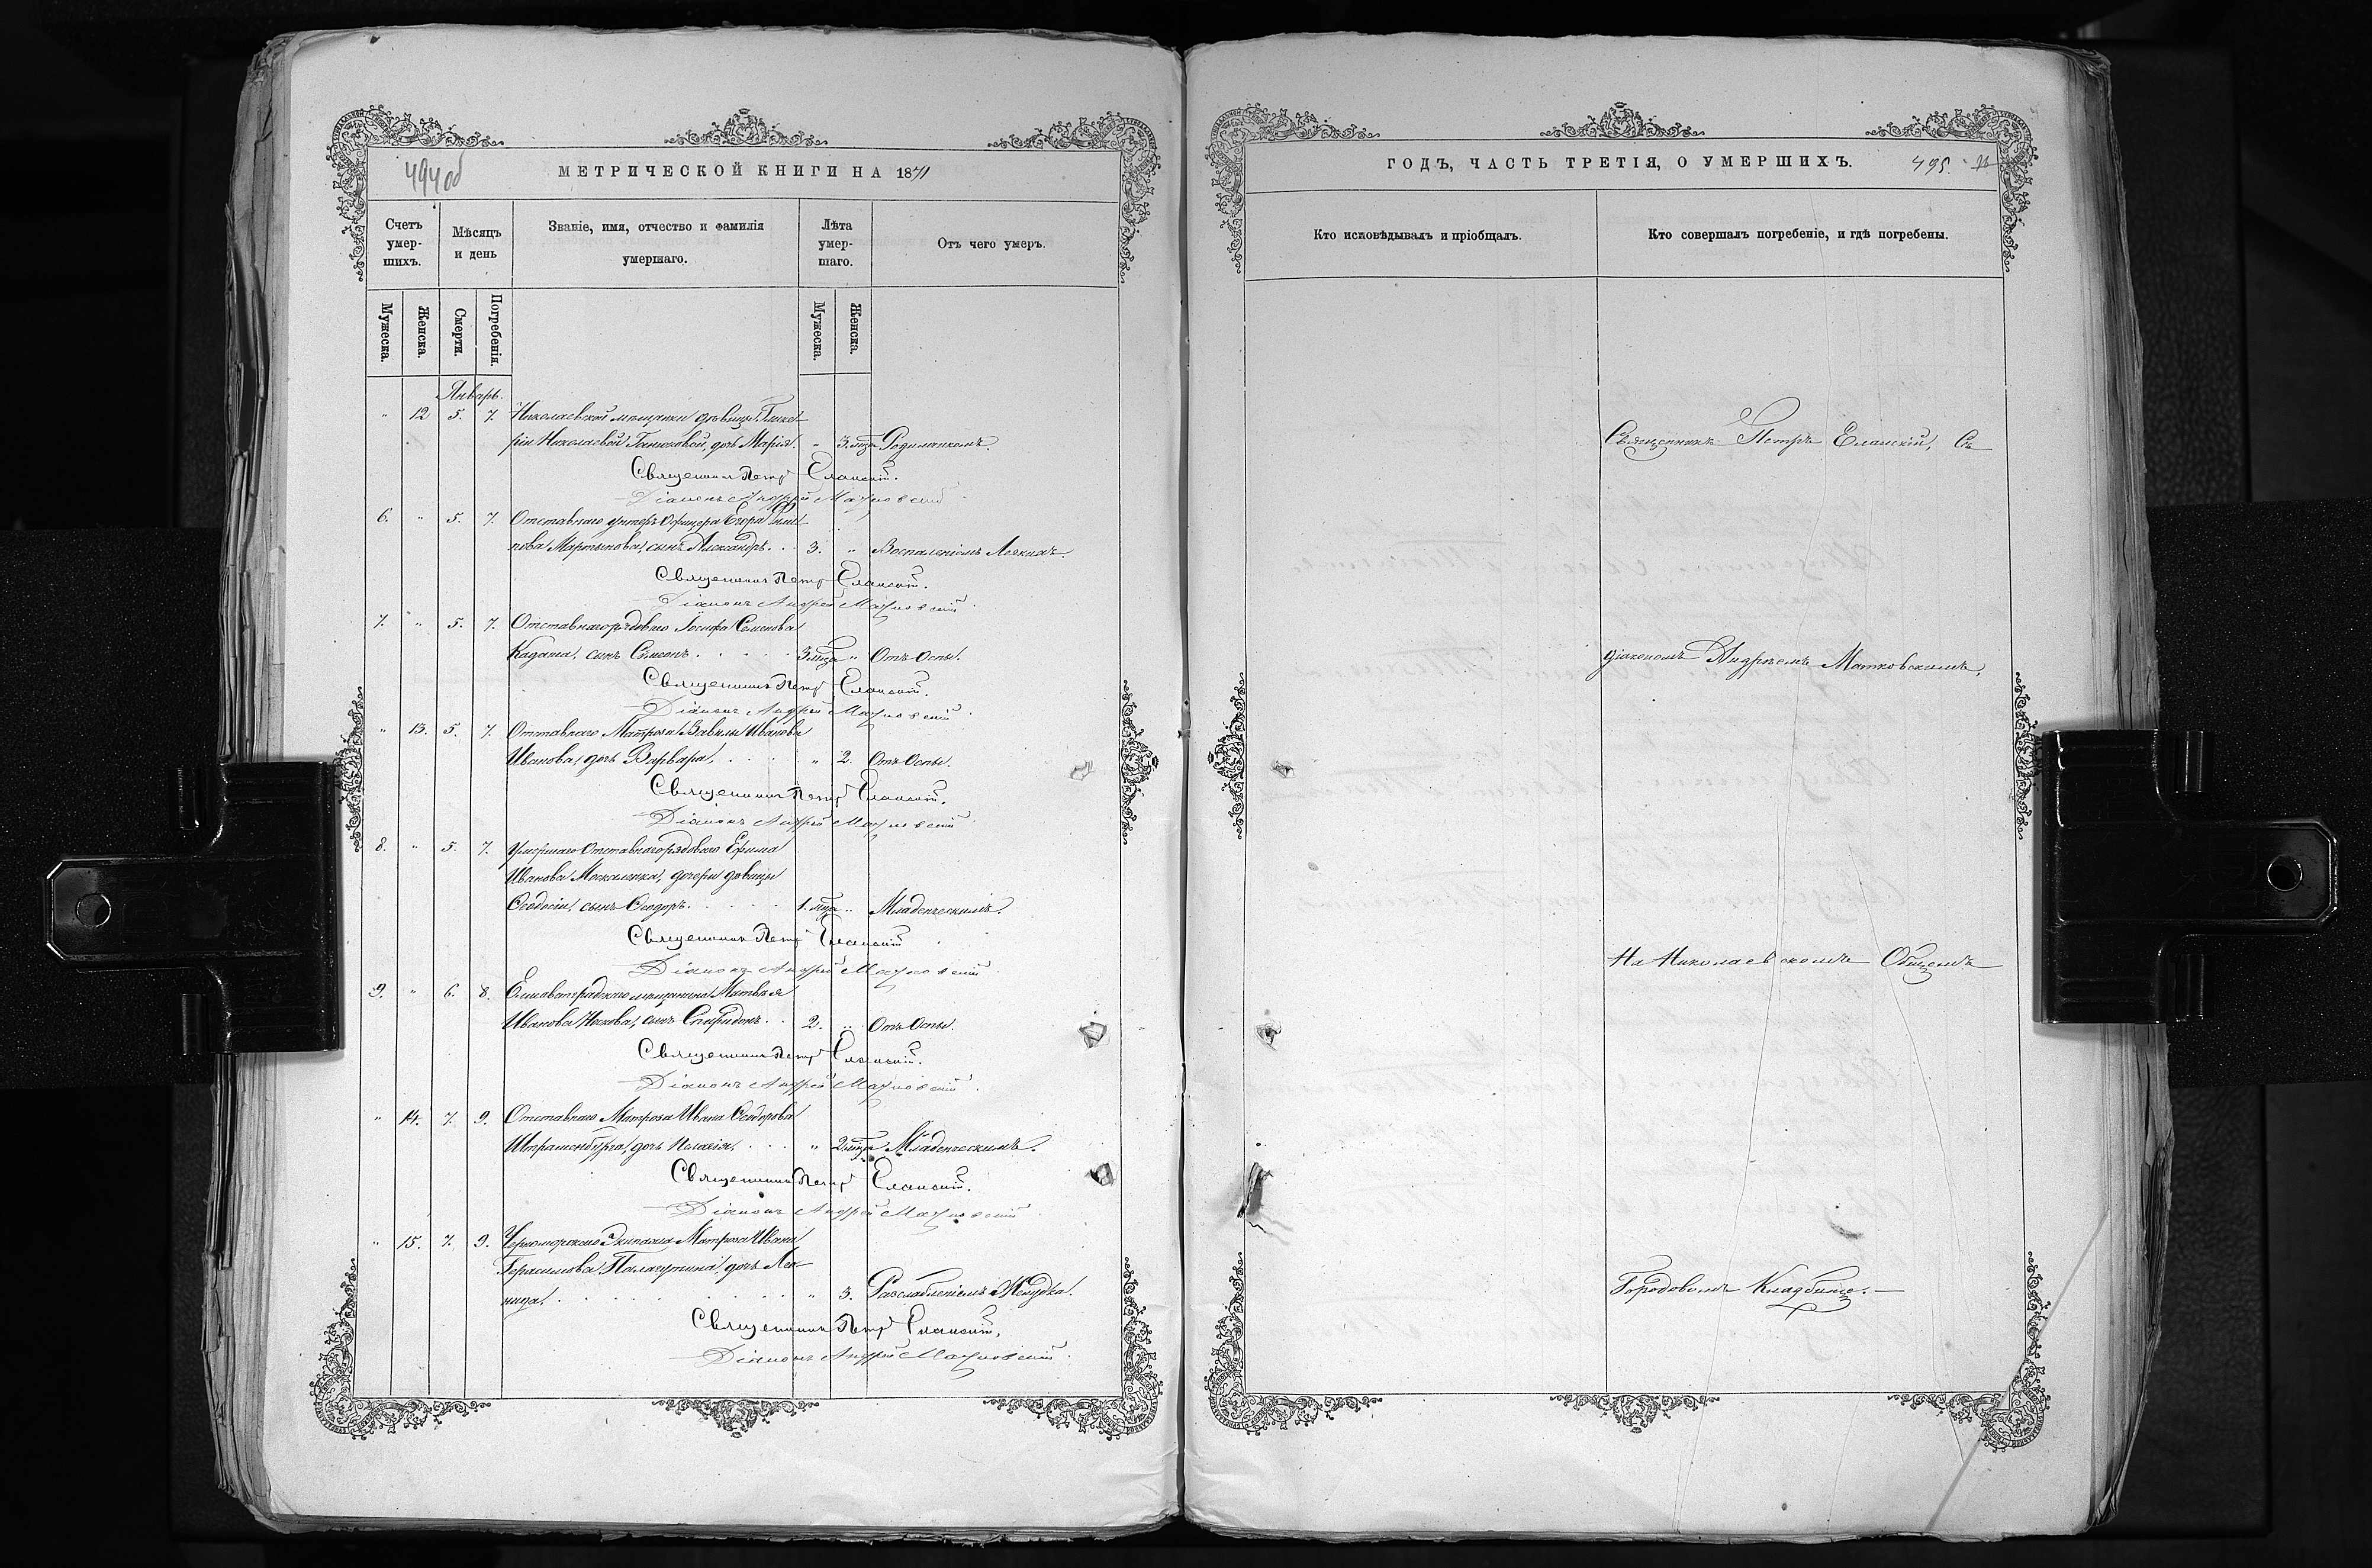 494 об
МЕТРИЧЕСКОЙ КНИГИ НА 1871
Счетъ умер-шихъ.
Мѣсяцъ и день
Званіе, имя, отчество и фамилія умершаго.
Лѣта умер-шаго.
Отъ чего умеръ.
Мужеска.
Женска.
Смерти.
Погребенія.
Мужеска.
Женска.
Январь.
" 12 5. 7. Николаевской мѣщанки дѣвицы Глике-
ріи Николаевой Ганюковой, дочь Марія. " 3 мца Родимчикомъ.
Священникъ Петръ Еланскій.
Діаконъ Андрей Матковскій
6. " 5. 7. Отставнаго унтеръ-Офицера Егора
пова Мартынова, сынъ Александръ. . 3. " Воспаленіемъ Легкихъ.
Священникъ Петръ Еланскій.
Діаконъ Андрей Матковскій.
7. " 5. 7. Отставнаго рядоваго Іосифа Семенова
Кадата, сынъ Симеонъ. . . . . 3 мца " Отъ Оспы.
Священникъ Петръ Еланскій.
Діаконъ Андрей Матковскій.
" 13. 5. 7. Отставнаго Матроса Вавилы Иванова
Иванова, дочь Варвара. . . . " 2. Отъ Оспы.
Священникъ Петръ Еланскій.
Діаконъ Андрей Матковскій
8. " 5. 7. Умершаго Отставнаго рядоваго Ефима
Иванова Москаленка, дочери дѣвицы
Ѳеодосіи, сынъ Ѳеодоръ. . . . . 1. мца " Младенческимъ.
Священникъ Петръ Еланскій
Діаконъ Андрей Матковскій
9. " 6. 8. Елисаветградскаго мѣщанина Матвѣя
Иванова Носкова, сынъ Спиридонъ. . 2. " Отъ Оспы.
Священникъ Петръ Еланскій.
Діаконъ Андрей Матковскій.
" 14. 7. 9. Отставнаго Матроса Ивана Ѳеодорова
Штрасенбурга, дочь Пелагія. . . . " 2 мца Младенческимъ.
Священникъ Петръ Еланскій.
Діаконъ Андрей Матковскій.
" 15. 7. 9. Черноморскаго Экипажа Матроса Ивана
Герасимова Палагутина, дочь Лео-
нида. . . . . . . . " 3. Разслабленіемъ Желудка.
Священникъ Петръ Еланскій.
Діаконъ Андрей Матковскій.
ГОДЪ, ЧАСТЬ ТРЕТІЯ, О УМЕРШИХЪ.
495.
Кто исповѣдывалъ и пріобщалъ.
Кто совершалъ погребеніе, и гдѣ погребены.
Священникъ Петръ Еланскій, Съ
діакономъ Андреемъ Матковскимъ,
На Николаевскомъ Общемъ
Городовомъ Кладбищѣ.—